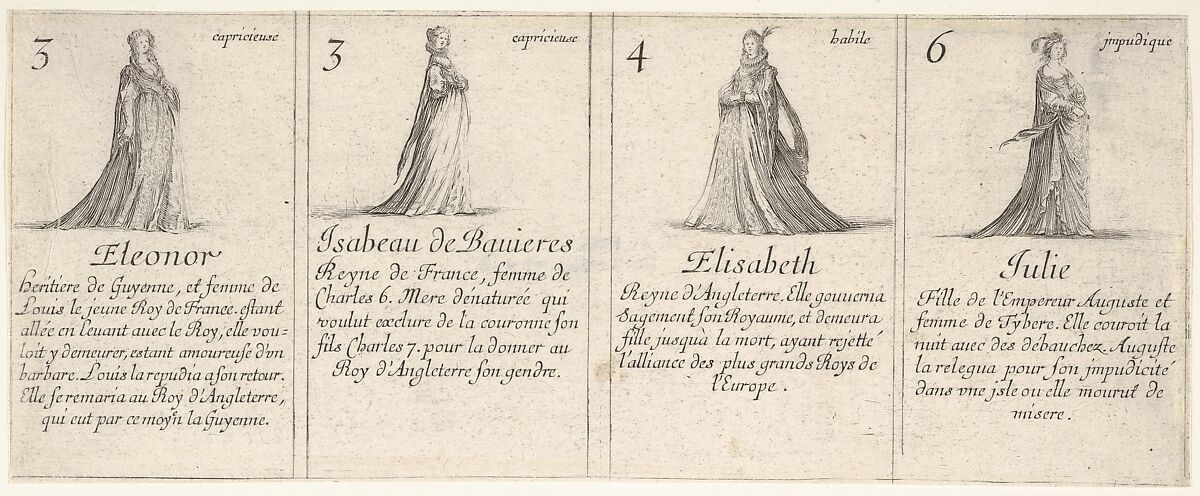 3
capricieuse
Eleonor
héritiere de Guyenne, et femme de
Louis le jeune Roy de France. estant
allée en leuant auec le Roy, elle vou=
loit y demeurer, estant amoureuse d'vn
barbare. Louis la repudia a son retour.
Elle se remaria au Roy d'Angleterre,
qui eut par ce moyen la Guyenne.
3
capricieuse
Isabeau de Bauieres
Reyne de France, femme de
Charles 6. Mere dénaturée qui
voulut exclure de la couronne son
fils Charles 7. pour la donner au
Roy d'Angleterre son gendre.
4
habile
Elisabeth
Reyne d'Angleterre. Elle gouuerna
sagement son Royaume, et demeura
fille jusquà la mort, ayant rejetté
l'alliance des plus grands Roys de
l'Europe.
6
jmpudique
Julie
Fille de l'Empereur Auguste et
femme de Tybere. Elle couroit la
nuit auec des débauchez. Auguste
la relegua pour son jmpudicité
dans vne jsle ou elle mourut de
misere.